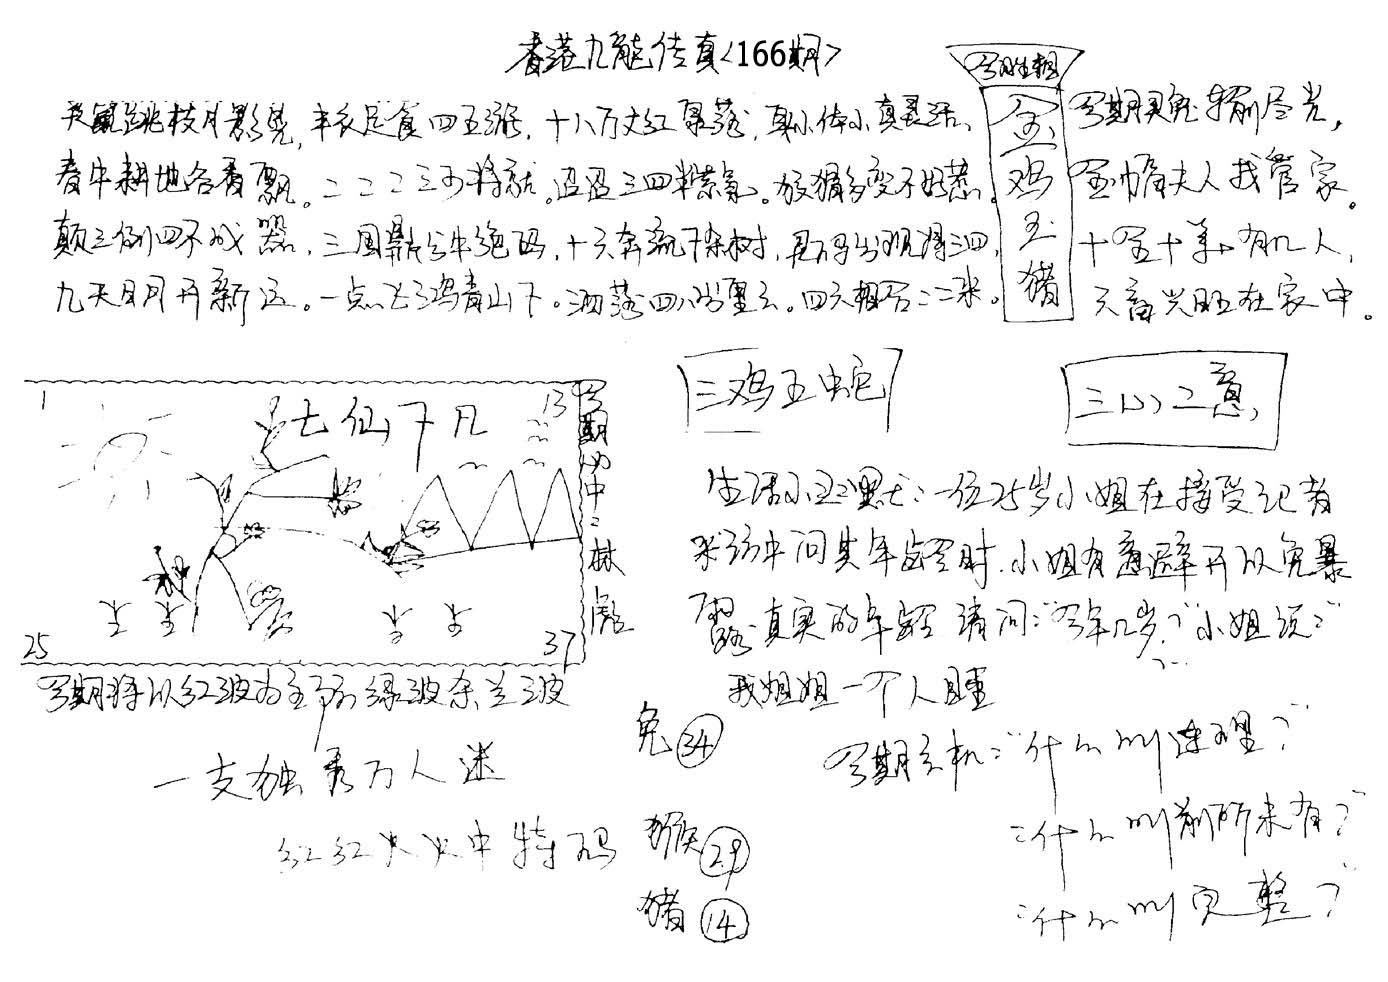 香港九龍传真<166期>
今期生相
天鼠跳枝月影晃，丰衣足食四五涨，十八万丈红暴落，身小体小真灵活。
春牛耕地各香飘。二二二三可将就。迢迢三四半紫氣。放猫多变不
颠三倒四不成器，三国鼎公牛绝码，十六奔流下杂树，
九天日月开新运。一点飞鸡青山下。洒落四八当里云。四六相合二二米。
金鸡玉猪
今期灵兔 前尽光，
金 夫人我管家。
十全十美有几人，
六畜兴旺在家中。
三鸡五蛇
三心二意
1
13
七仙下凡
今期必中二林彪
25
37
今期将以红波为主 绿波余兰波
一支独秀万人迷
红红火火中特码
兔 34
猴 29
猪 14
生活小幽默：一位25岁小姐在接受记者
采访中问其年龄时，小姐有意避开以免暴
露真实的年龄 请问：“今年几岁？”小姐说：
我姐姐一个人睡
今期玄机：“什么叫连理？”
：“什么叫前所未有？”
：“什么叫完整？”